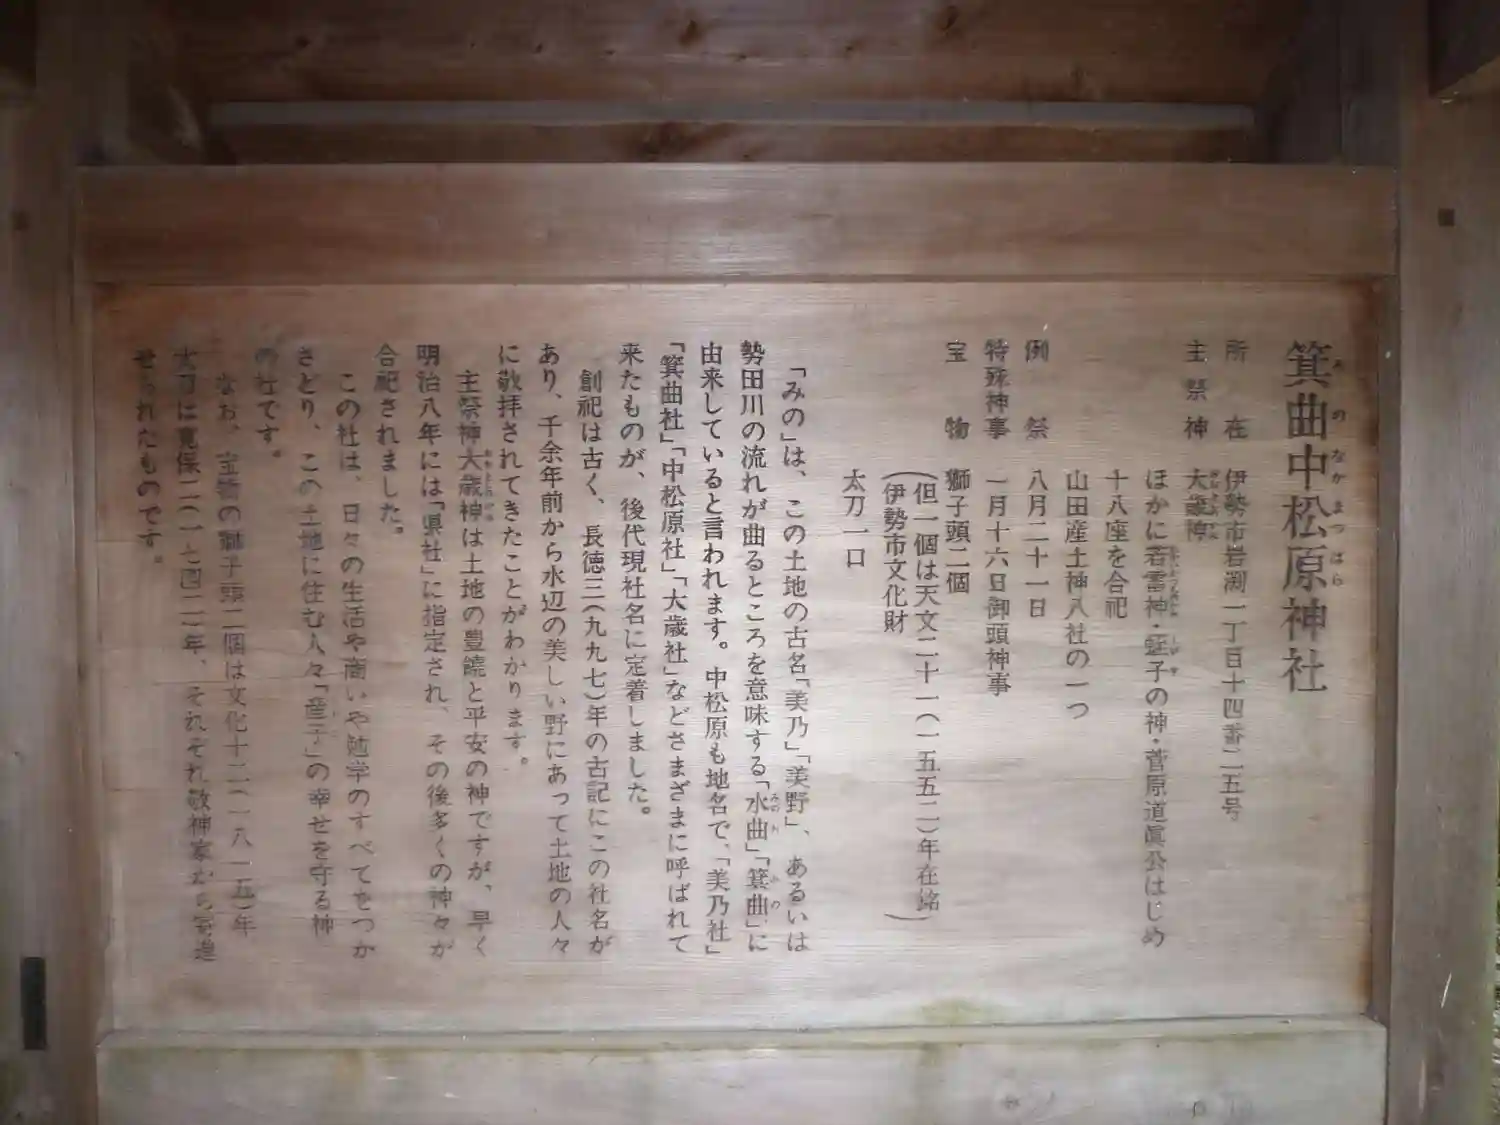 箕曲中松原神社
所在 伊勢市岩渕一丁目十四番二五号
主祭神 大歳神
ほかに若雷神・蛭子の神・菅原道眞公はじめ
十八座を合祀
山田産土神八社の一つ
例祭 八月二十一日
特殊神事 一月十六日御頭神事
宝物 獅子頭二個
(但一個は天文二十一(一五五二)年在銘)
(伊勢市文化財
太刀一口
「みの」は、この土地の古名「美乃」「美野」、あるいは
勢田川の流れが曲るところを意味する「水曲」「箕曲」に
由来していると言われます。中松原も地名で、「美乃社」
「箕曲社」「中松原社」「大歳社」などさまざまに呼ばれて
来たものが、後代現社名に定着しました。
創祀は古く、長徳三(九九七)年の古記にこの社名が
あり、千余年前から水辺の美しい野にあって土地の人々
に敬拝されてきたことがわかります。
主祭神大歳神は土地の豊饒と平安の神ですが、早く
明治八年には「県社」に指定され、その後多くの神々が
合祀されました。
この社は、日々の生活や商いや勉学のすべてをつか
さどり、この土地に住む人々「産子」の幸せを守る神
の社です。
なお、宝物の獅子頭二個は文化十二(一八一五)年
太刀は寛保二(一七四二)年、それぞれ敬神家から寄進
せられたものです。